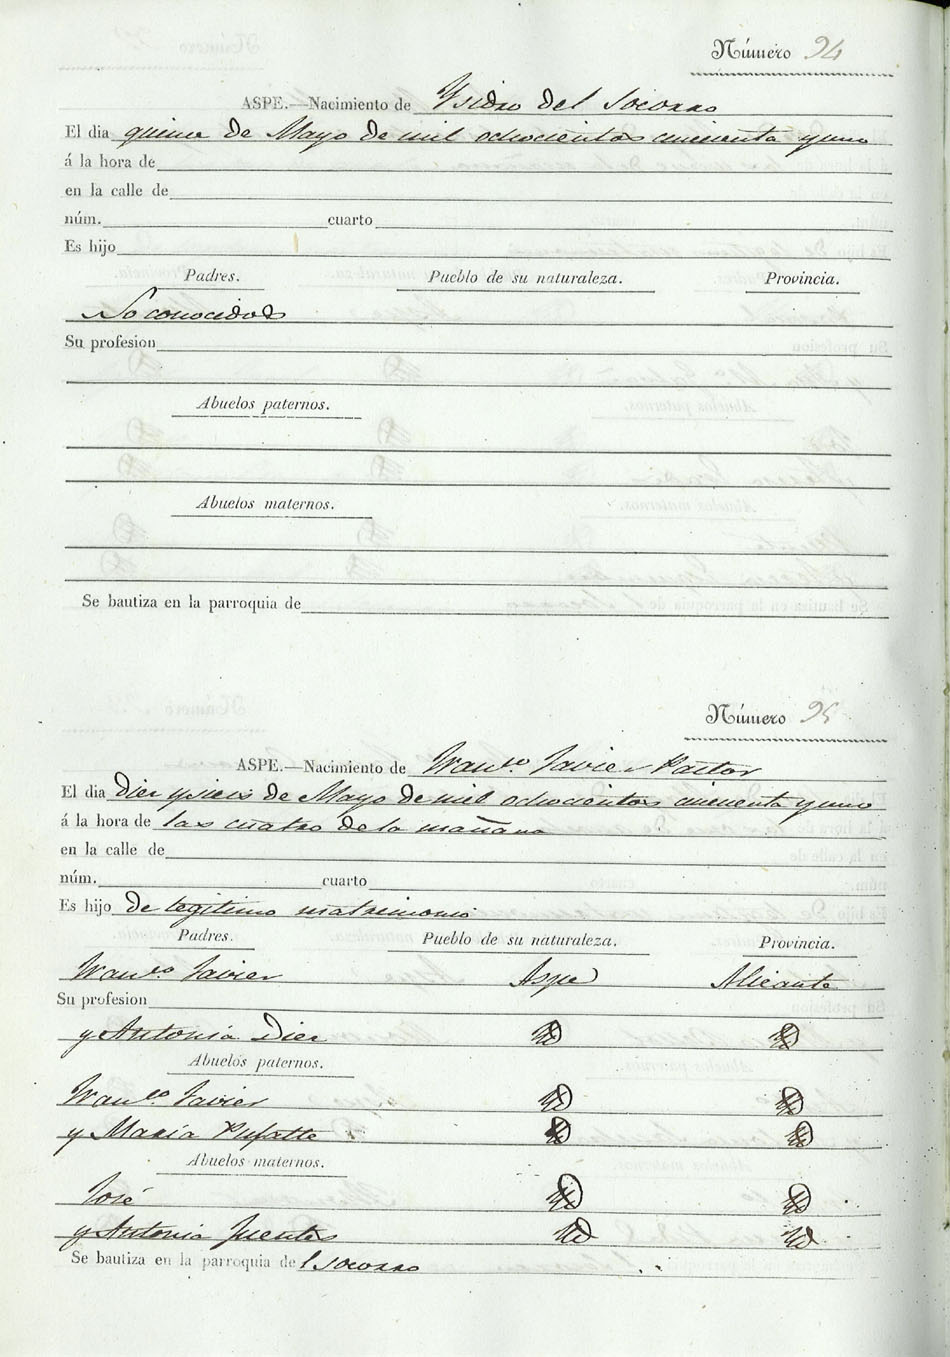 Número 94
ASPE.—Nacimiento de Ysidro del Socorro
El dia quince de Mayo de mil ochocientos cincuenta y uno
á la hora de
en la calle de
núm. cuarto
Es hijo
Padres. Pueblo de su naturaleza. Provincia.
No conocidos
Su profesion
Abuelos paternos.
Abuelos maternos.
Se bautiza en la parroquia de
Número 95
ASPE.—Nacimiento de Franco. Javier Pastor
El dia Diez y seis de Mayo de mil ochocientos cincuenta y uno
á la hora de las cuatro de la mañana
en la calle de
núm. cuarto
Es hijo de legitimo matrimonio
Padres. Pueblo de su naturaleza. Provincia.
Franco Javier Aspe Alicante
Su profesion
y Antonia Diez Yd Yd
Abuelos paternos.
Franco Javier Yd Yd
y Maria Yd Yd
Abuelos maternos.
José Yd Yd
y Antonia Fuentes Yd Yd
Se bautiza en la parroquia de l Socorro